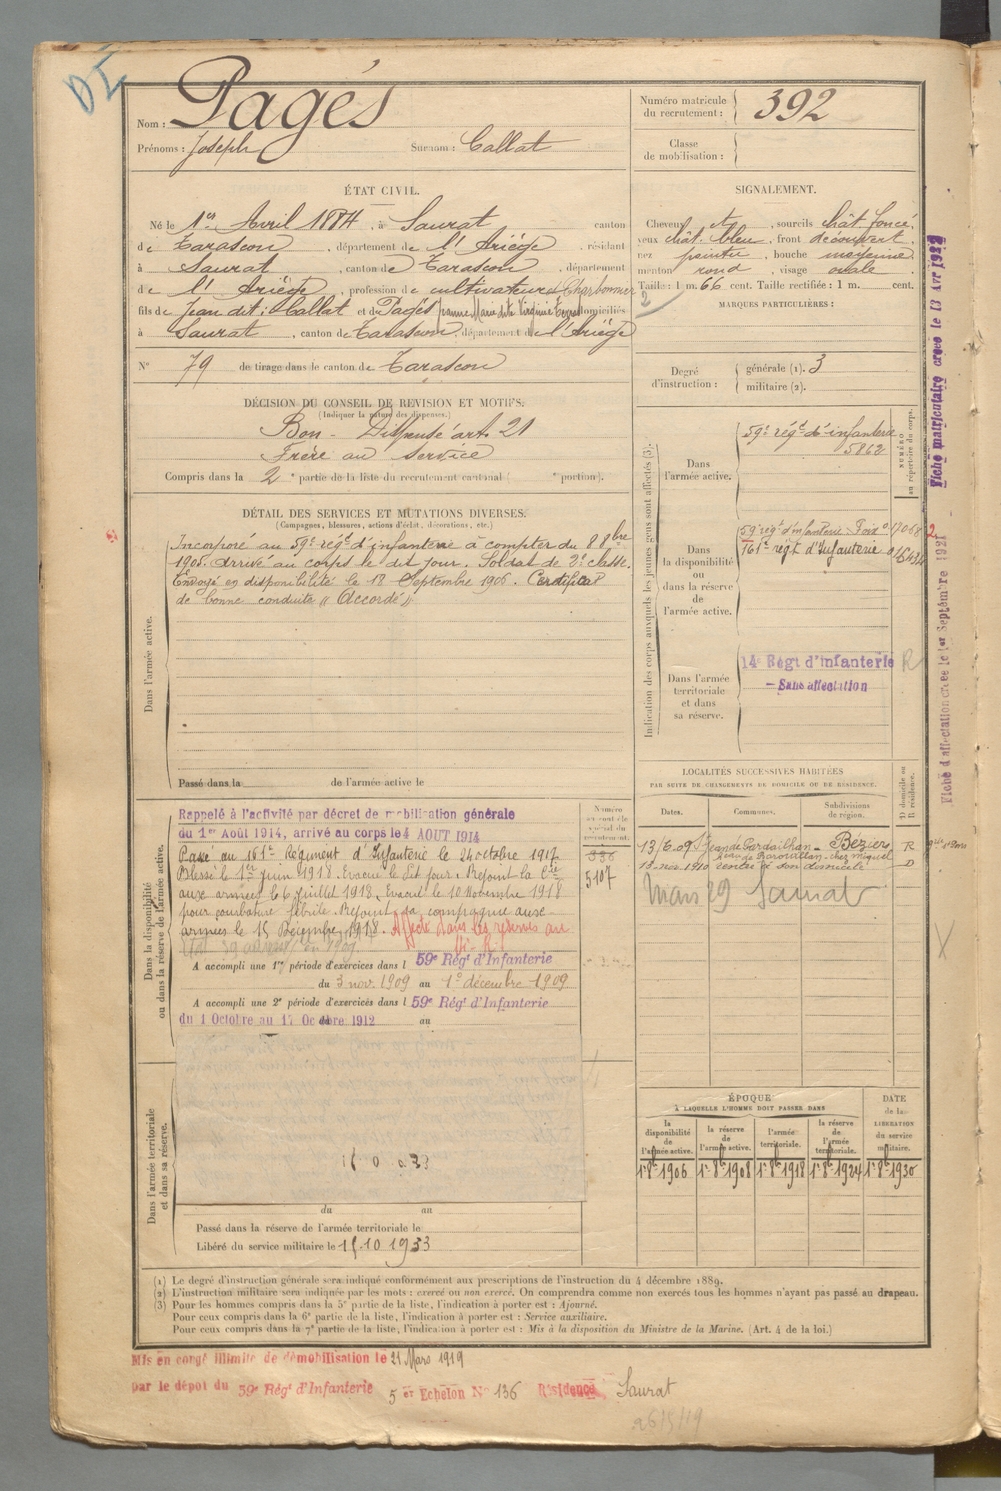 DE
Nom : Pagès
Prénoms : Joseph Surnom : Callat
Numéro matricule du recrutement : 392
Classe de mobilisation :
ÉTAT CIVIL.
Né le 1er Avril 1884, à Saurat canton
de Tarascon, département de l'Ariège, résidant
à Saurat, canton de Tarascon, département
de l'Ariège, profession de cultivateur et Charbonnier
fils de Jean dit: Callat et de Pagès Jeanne Marie dite Virginie domiciliés
à Saurat, canton de Tarascon, département de l'Ariège
N° 79 de tirage dans le canton de Tarascon
SIGNALEMENT.
Cheveux et, sourcils chât. foncé,
yeux chât. bleu, front découvert,
nez pointu, bouche moyenne
menton rond, visage ovale
Taille : 1 m. 66 cent. Taille rectifiée : 1 m. cent.
MARQUES PARTICULIÈRES :
Degré d'instruction : générale (1). 3
militaire (2).
DÉCISION DU CONSEIL DE REVISION ET MOTIFS.
(Indiquer la nature des dispenses.)
Bon - Dispensé art. 21
Frère au service
Compris dans la 2e partie de la liste du recrutement cantonal ( portion).
DÉTAIL DES SERVICES ET MUTATIONS DIVERSES.
(Campagnes, blessures, actions d'éclat, décorations, etc.)
Dans l'armée active.
Incorporé au 59e régt d'infanterie à compter du 8 8bre
1905. Arrivé au corps le dit jour. Soldat de 2e classe.
Envoyé en disponibilité le 18 Septembre 1906. Certificat
de bonne conduite « Accordé »
Passé dans la de l'armée active le
Indication des corps auxquels les jeunes gens sont affectés (3).
NUMÉRO au répertoire du corps.
Dans l'armée active.
59e régt d'infanterie
5862
Dans la disponibilité ou dans la réserve de l'armée active.
59e régt d'infanterie Foix 017068
161e régt d'Infanterie
Dans l'armée territoriale et dans sa réserve.
14e Régt d'Infanterie R
- Sans affectation
Fiche matriculaire créée le 13 Avr 1932
Fiche d'affectation créée le 1er Septembre 1921
LOCALITÉS SUCCESSIVES HABITÉES
PAR SUITE DE CHANGEMENTS DE DOMICILE OU DE RÉSIDENCE.
Dates. Communes. Subdivisions de région. D domicile ou R résidence.
13/6.09 St Jean de Pardailhan - Béziers R
chez Miquel
13-nov. 1910 rentré à son domicile D
Mars 29 Saurat
Dans la disponibilité ou dans la réserve de l'armée active.
Rappelé à l'activité par décret de mobilisation générale
du 1er Août 1914, arrivé au corps le 4 AOUT 1914
Passé au 161e Régiment d'Infanterie le 24 octobre 1917
Blessé le 1er juin 1918. Evacué le dit jour. Rejoint la Cie
aux armées le 6 juillet 1918. Evacué le 10 Novembre 1918
pour courbature fébrile. Rejoint sa compagnie aux
armées le 15 Décembre 1918. Affecté dans les réserves au
14e R.I.
A accompli une 1re période d'exercices dans l 59e Régt d'Infanterie
du 3 nov. 1909 au 1er décembre 1909
A accompli une 2e période d'exercices dans l 59e Régt d'Infanterie
du 1 Octobre au 17 Octobre 1912 au
336
5107
Dans l'armée territoriale et dans sa réserve.
du au
Passé dans la réserve de l'armée territoriale le
Libéré du service militaire le 15.10 1933
ÉPOQUE
À LAQUELLE L'HOMME DOIT PASSER DANS
la disponibilité de l'armée active. la réserve de l'armée active. l'armée territoriale. la réserve de l'armée territoriale. DATE de la LIBÉRATION du service militaire.
1er 8bre 1906 1er 8bre 1908 1er 8bre 1918 1er 8bre 1924 1er 8bre 1930
(1) Le degré d'instruction générale sera indiqué conformément aux prescriptions de l'instruction du 4 décembre 1889.
(2) L'instruction militaire sera indiquée par les mots : exercé ou non exercé. On comprendra comme non exercés tous les hommes n'ayant pas passé au drapeau.
(3) Pour les hommes compris dans la 5e partie de la liste, l'indication à porter est : Ajourné.
Pour ceux compris dans la 6e partie de la liste, l'indication à porter est : Service auxiliaire.
Pour ceux compris dans la 7e partie de la liste, l'indication à porter est : Mis à la disposition du Ministre de la Marine. (Art. 4 de la loi.)
Mis en congé illimité de démobilisation le 21 Mars 1919
par le dépôt du 59e Régt d'Infanterie 5 er Echelon N° 136 Résidence Saurat